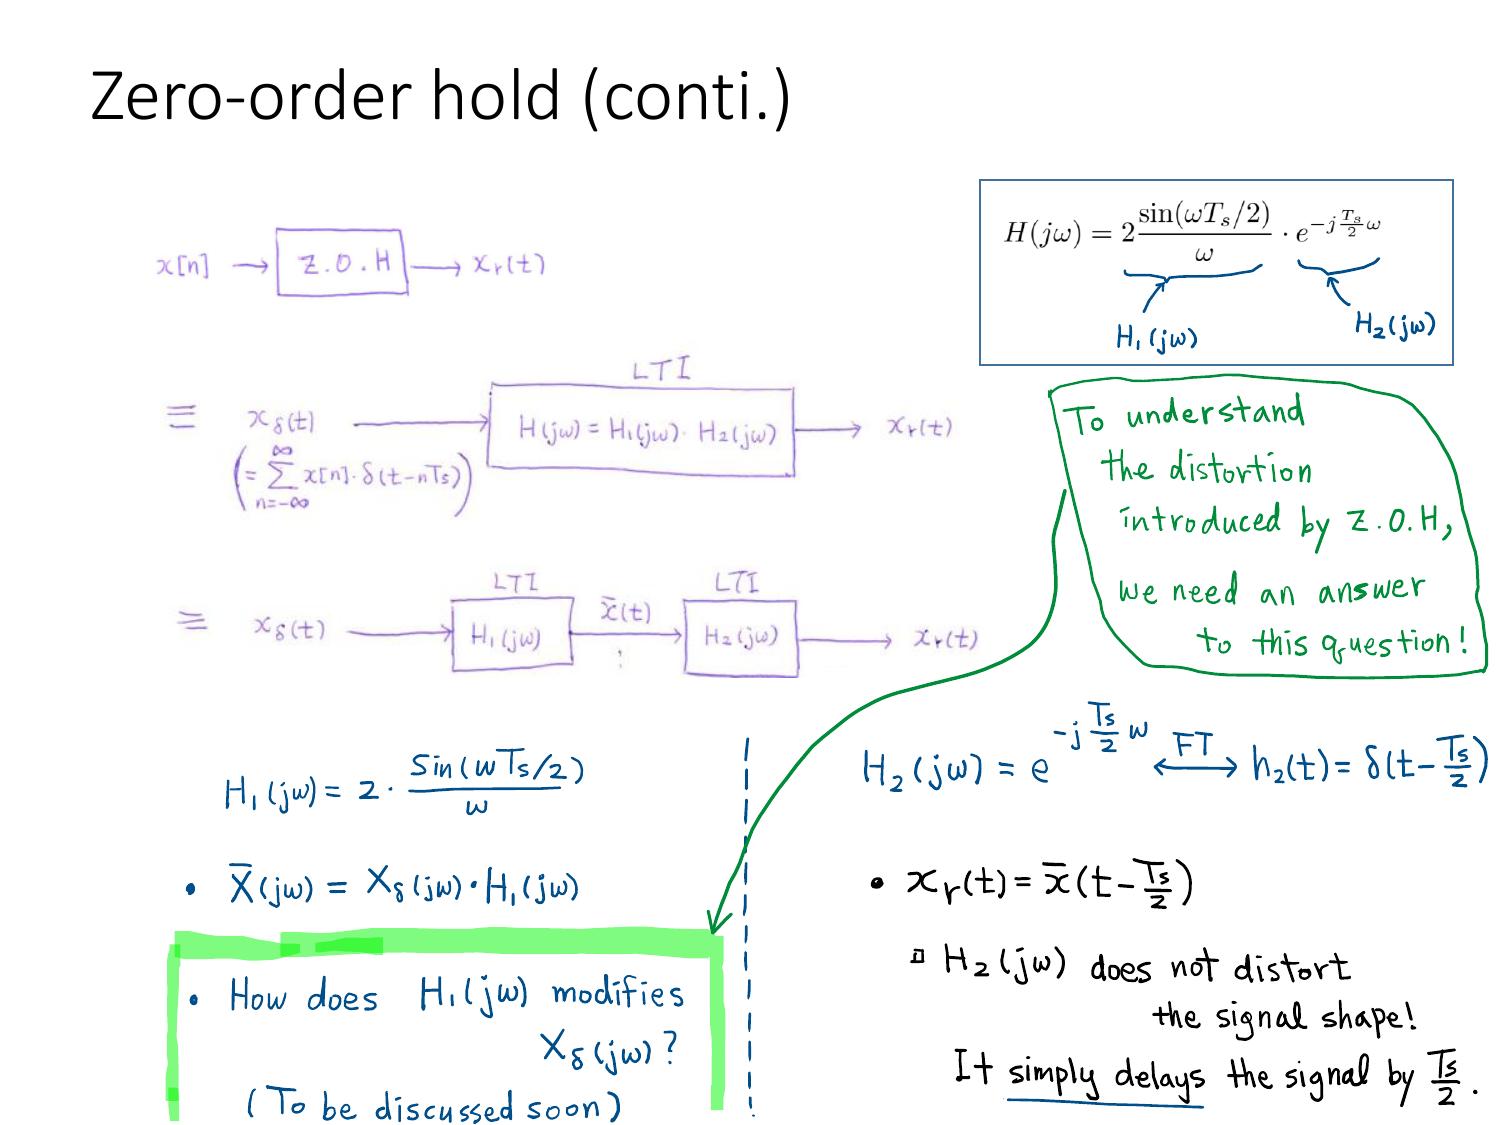 Zero-order hold (conti.)
x[n] → Z.O.H → xᵣ(t)
H(jω) = 2 sin(ωTₛ/2)/ω · e^{-j (Tₛ/2) ω}
H₁(jω)
H₂(jω)
LTI
≡ x_δ(t) → H(jω) = H₁(jω) · H₂(jω) → xᵣ(t)
(= ∑_{n=-∞}^{∞} x[n]·δ(t-nTs))
To understand
the distortion
introduced by Z.O.H,
we need an answer
to this question!
LTI LTI
≡ x_δ(t) → H₁(jω) → x̄(t) → H₂(jω) → xᵣ(t)
H₁(jω) = 2 · sin(ωTs/2)/ω
• X̄(jω) = X_δ(jω)·H₁(jω)
• How does H₁(jω) modifies
X_δ(jω)?
(To be discussed soon)
H₂(jω) = e^{-j (Ts/2) ω} ⟷ FT h₂(t) = δ(t-Ts/2)
• xᵣ(t) = x̄(t-Ts/2)
▫ H₂(jω) does not distort
the signal shape!
It simply delays the signal by Ts/2.